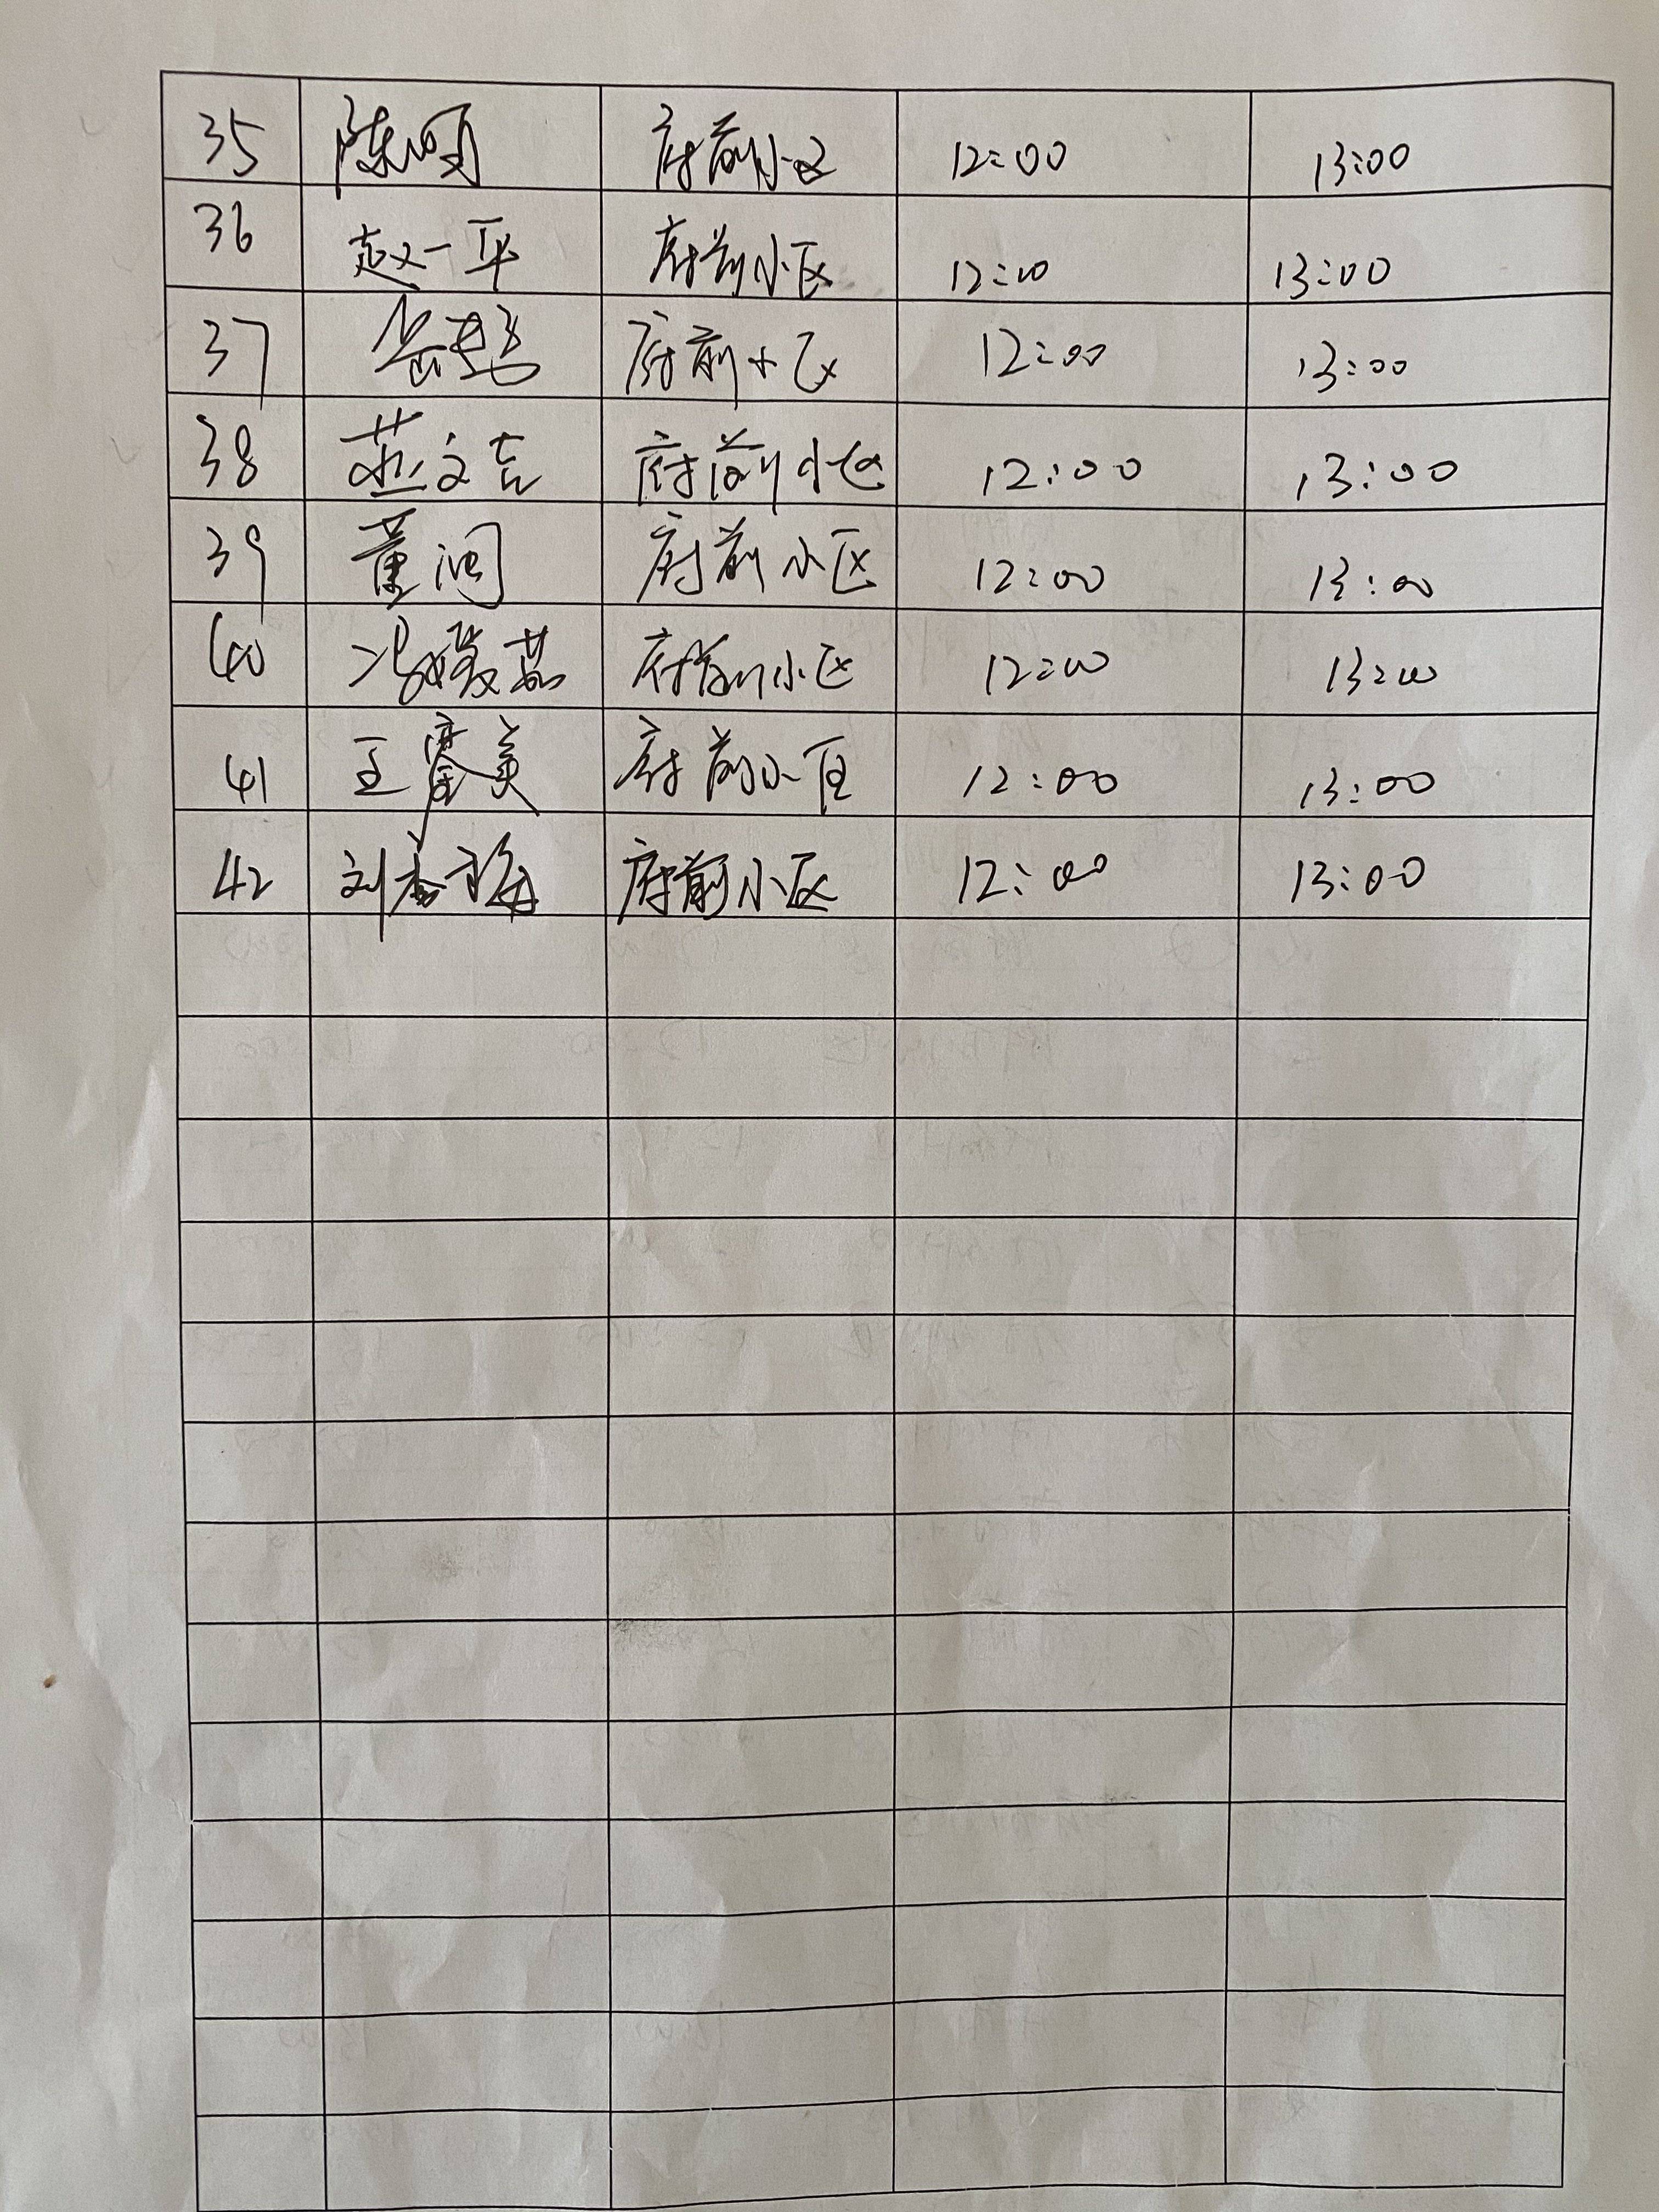 35 陈 府前小区 12:00 13:00
36 赵一平 府前小区 12:00 13:00
37 岳 府前小区 12:00 13:00
38 燕文吉 府前小区 12:00 13:00
39 董润 府前小区 12:00 13:00
40 冯媛茹 府前小区 12:00 13:00
41 王美 府前小区 12:00 13:00
42 刘春梅 府前小区 12:00 13:00